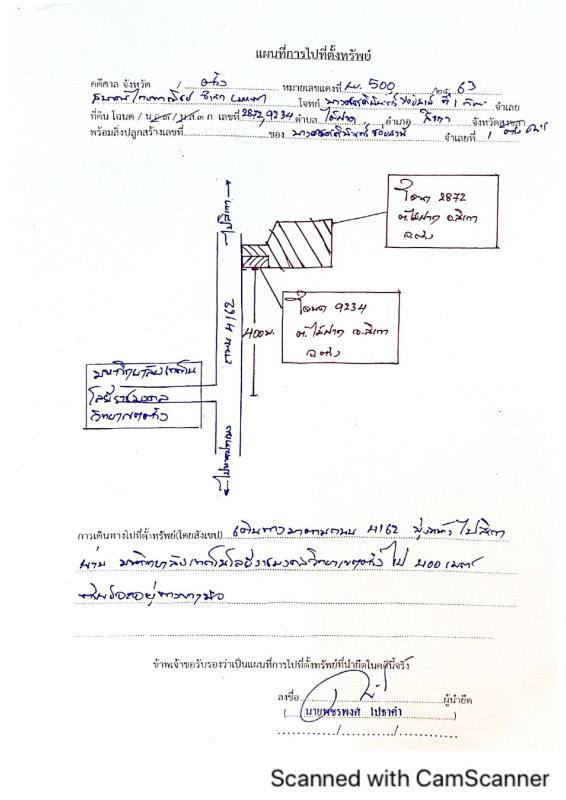 แผนที่การไปที่ตั้งทรัพย์
คดีศาล จังหวัด ตรัง หมายเลขแดงที่ ผบ. 500 /25 63
ธนาคารไทยพาณิชย์ จำกัด (มหาชน) โจทก์ ที่ 1 จำเลย
ที่ดิน โฉนด / น.ส.๓ / น.ส.๓ ก. เลขที่ 2872,9234 ตำบล ไม้ฝาด อำเภอ สิเกา จังหวัดสงขลา ตรัง
พร้อมสิ่งปลูกสร้างเลขที่ ของ จำเลยที่ 1
ไปสิเกา
โฉนด 2872
ต.ไม้ฝาด อ.สิเกา
จ.ตรัง
ถนน 4162
400 ม.
โฉนด 9234
ต.ไม้ฝาด อ.สิเกา
จ.ตรัง
มหาวิทยาลัยเทคโน
โลยีราชมงคล
วิทยาเขตตรัง
การเดินทางไปที่ตั้งทรัพย์(โดยสังเขป) เดินทางมาตามถนน 4162 มุ่งหน้าไปสิเกา
ผ่าน มหาวิทยาลัยเทคโนโลยีราชมงคลวิทยาเขตตรัง ไป 400 เมตร
ที่ดินอยู่ทางขวามือ
ข้าพเจ้าขอรับรองว่าเป็นแผนที่การไปที่ตั้งทรัพย์ที่นำยึดในคดีนี้จริง
ลงชื่อ ผู้นำยึด
( นายพชรพงศ์ ไปธาคำ )
/ /
Scanned with CamScanner